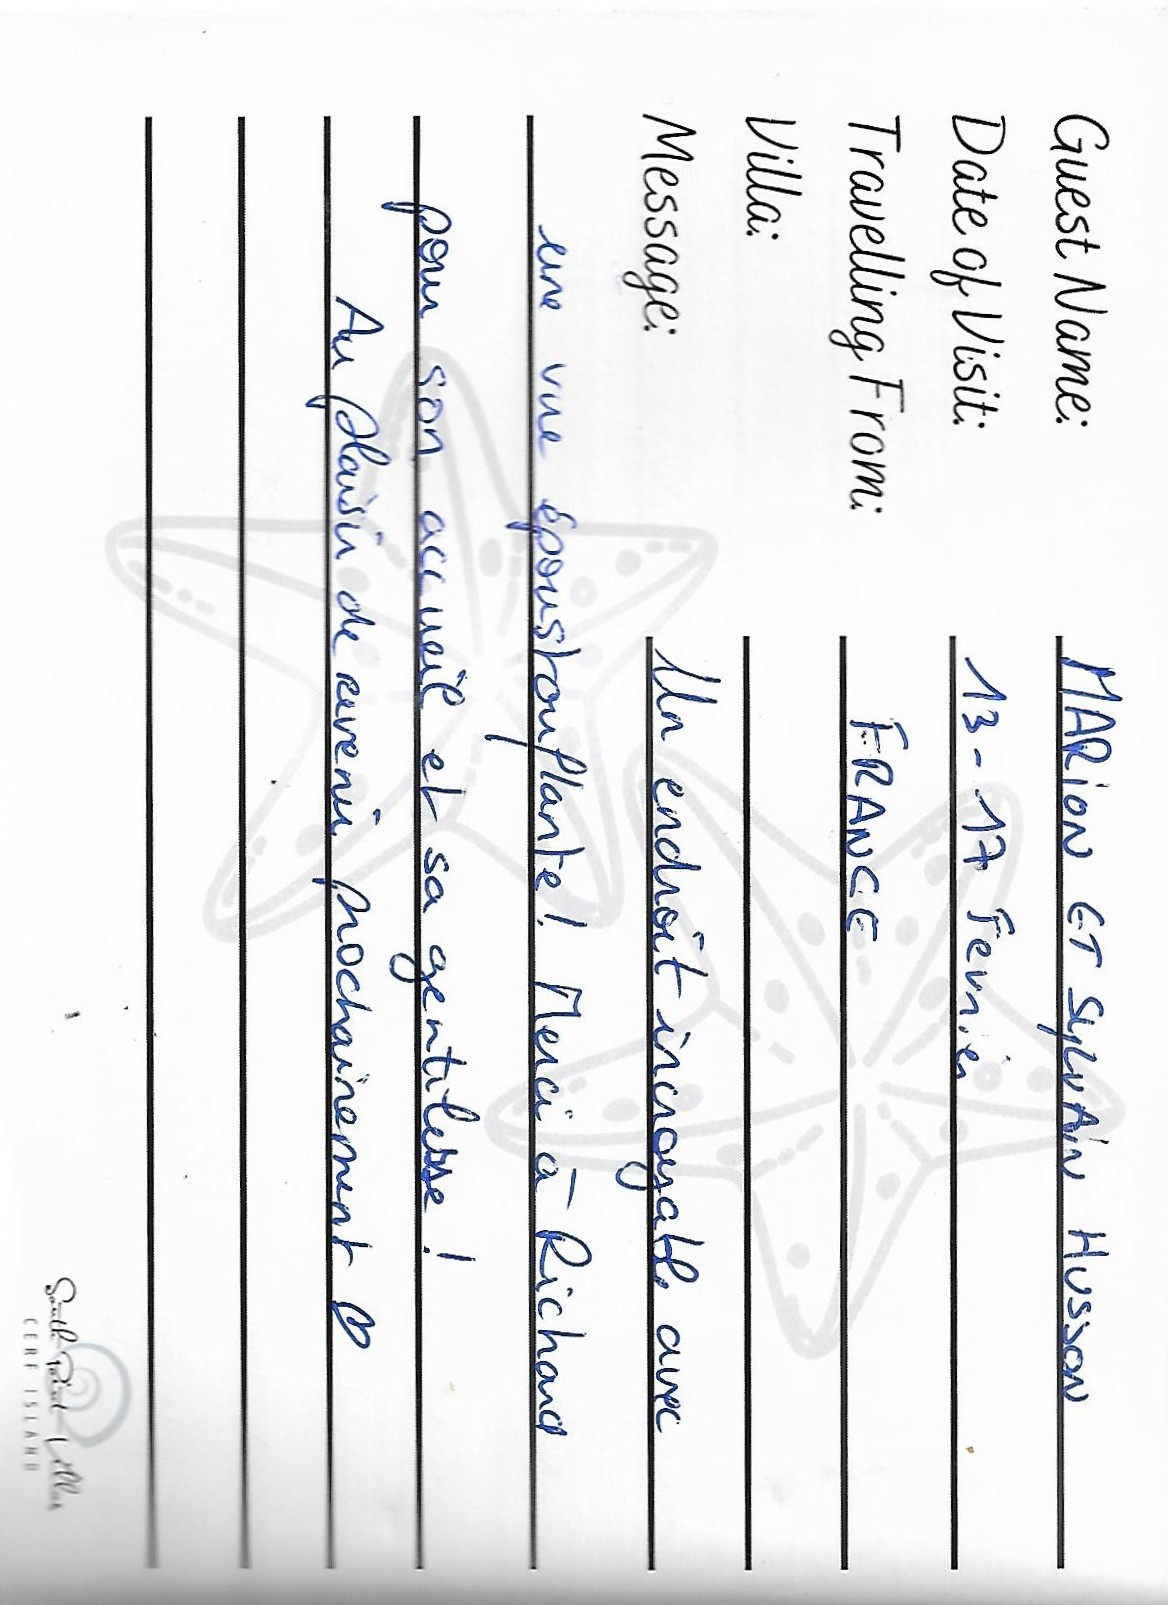 Guest Name: MARiON ET SylVAiN HUSSON
Date of Visit: 13-17 Fevrier
Travelling From: FRANCE
Villa:
Message: Un endroit incroyable avec
une vue époustouflante! Merci à Richard
pour son accueil et sa gentilesse!
Au plaisir de revenir prochainement
South Point Villas
CERF ISLAND